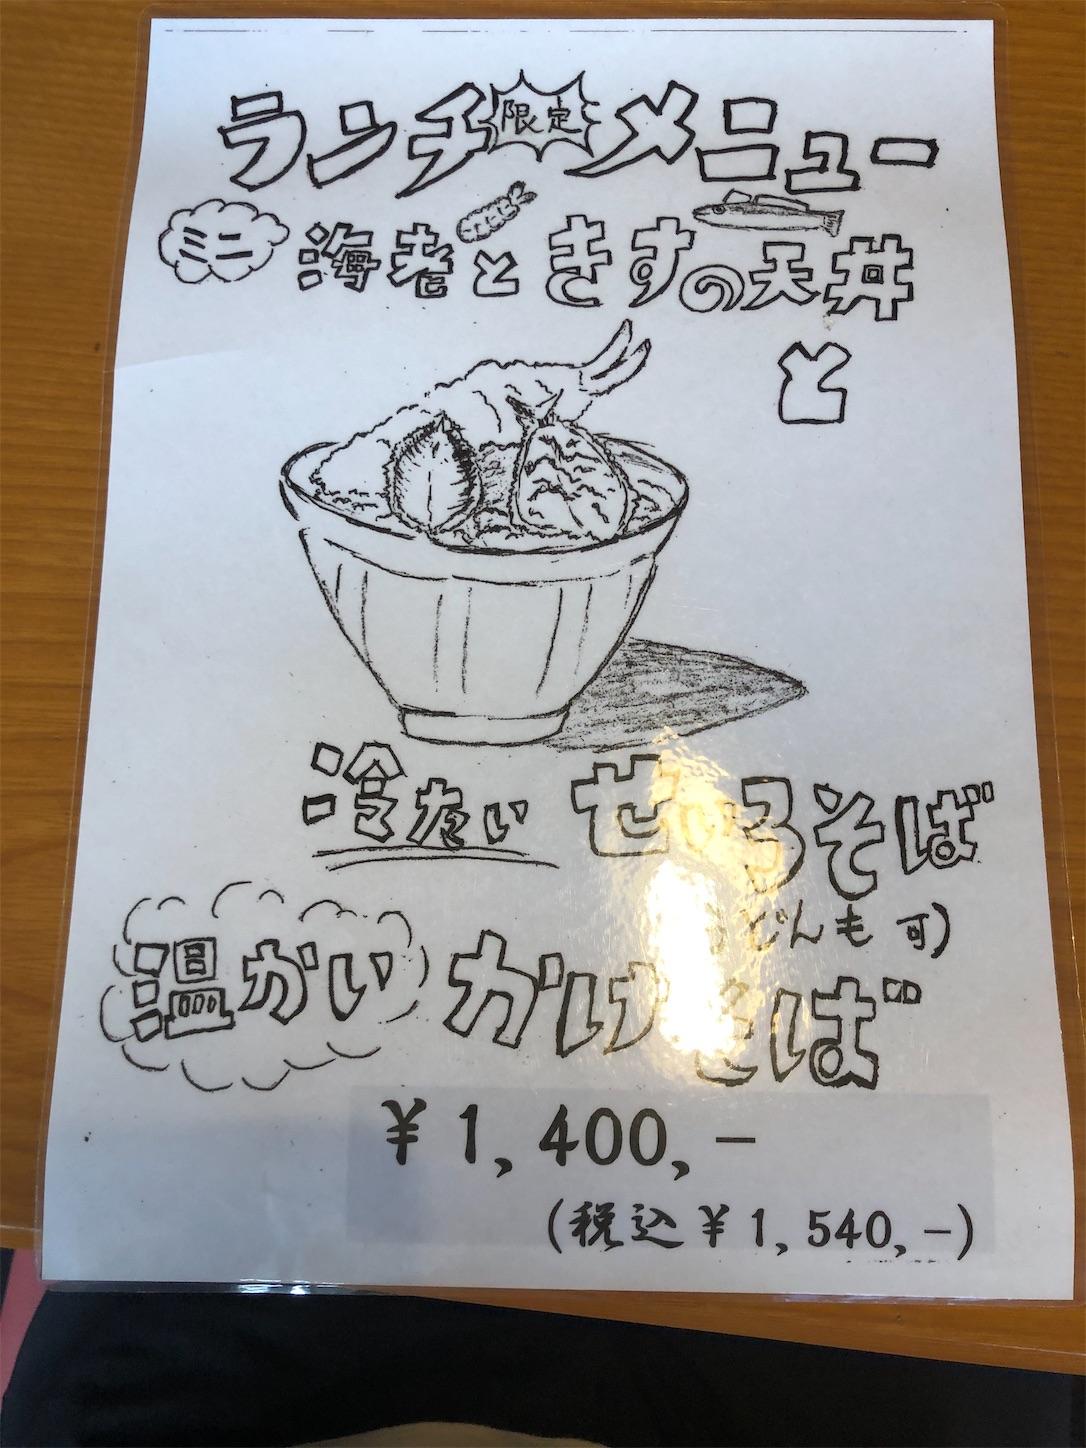 ランチ限定メニュー
ミニ 海老ときすの天丼
と
冷たい せいろそば
うどんも可)
温かい かけそば
¥1,400,-
(税込¥1,540,-)